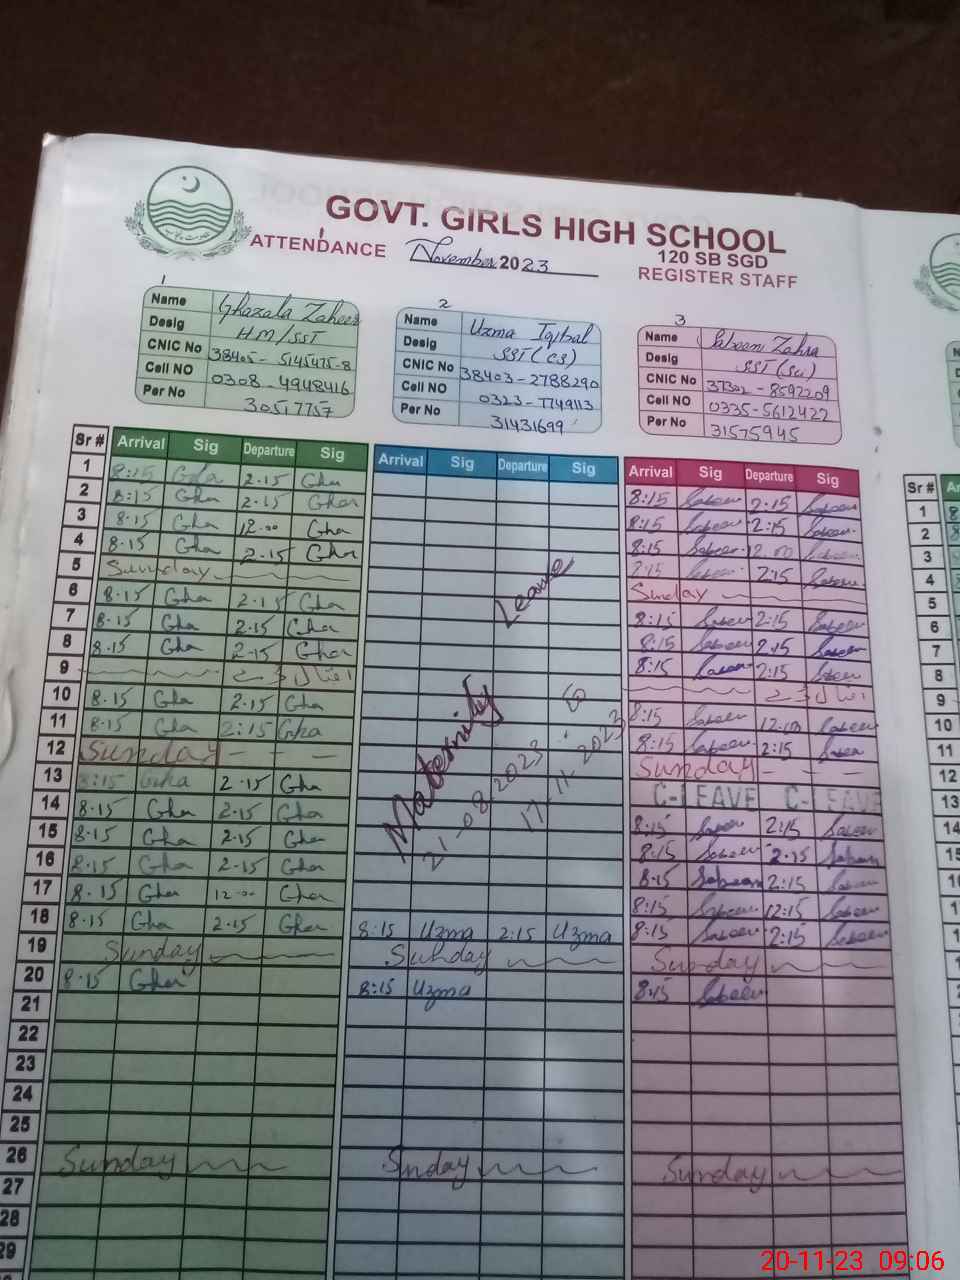 GOVT. GIRLS HIGH SCHOOL
120 SB SGD
ATTENDANCE November 2023
REGISTER STAFF
1
Name Ghazala Zaheer
Desig HM/SST
CNIC No 38405-5145475-8
Cell NO 0308-4948416
Per No 30517757
2
Name Uzma Iqbal
Desig SST(CS)
CNIC No 38403-2788290
Cell NO 0323-7749113
Per No 31431699
3
Name Sabeen Zahra
Desig SST(Sci)
CNIC No 37302-8592209
Cell NO 0335-5612422
Per No 31575945
Sr # Arrival Sig Departure Sig Arrival Sig Departure Sig Arrival Sig Departure Sig Sr #
1 8:15 Gha 2.15 Gha 8:15 Sabeen 2:15 Sabeen 1
2 8:15 Gha 2.15 Gha 8:15 Sabeen 2:15 Sabeen 2
3 8.15 Gha 12.00 Gha 8:15 Sabeen 12.00 3
4 8.15 Gha 2.15 Gha 2:15 Sabeen 4
5 Sunday Sunday 5
6 8.15 Gha 2.15 Gha 8:15 Sabeen 2:15 Sabeen 6
7 8.15 Gha 2.15 Gha 8:15 Sabeen 2:15 Sabeen 7
8 8.15 Gha 2.15 Gha 8:15 Sabeen 2:15 Sabeen 8
9 9
10 8.15 Gha 2.15 Gha 8:15 Sabeen 12:00 Sabeen 10
11 8.15 Gha 2:15 Gha 8:15 Sabeen 2:15 Sabeen 11
12 Sunday Sunday 12
13 8:15 Gha 2.15 Gha C-LEAVE C-LEAVE 13
14 8.15 Gha 2.15 Gha 8:15 Sabeen 2:15 Sabeen 14
15 8.15 Gha 2.15 Gha 8:15 Sabeen 2:15 Sabeen 15
16 8.15 Gha 2.15 Gha 8:15 Sabeen 2:15 Sabeen
17 8.15 Gha 12.00 Gha 8:15 Sabeen 12:15 Sabeen
18 8.15 Gha 2.15 Gha 8:15 Uzma 2:15 Uzma 8:15 Sabeen 2:15 Sabeen
19 Sunday Sunday Sunday
20 8.15 Gha 8:15 Uzma 8:15 Sabeen
21
22
23
24
25
26 Sunday Snday Sunday
27
28
29
Maternity Leave
21-08-2023 to 17-11-2023
20-11-23 09:06